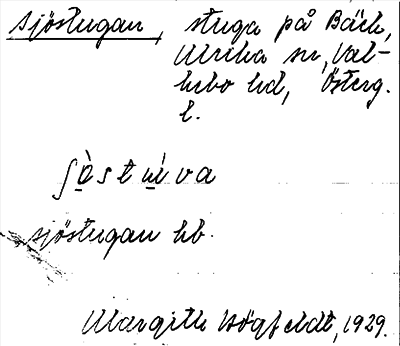 Sjöstugan, stuga på Bäck,
Ulrika sn, Val-
kebo hd, Österg.
l.
ʃö̀stu̇va
sjöstugan hb.
Margith Högfeldt, 1929.